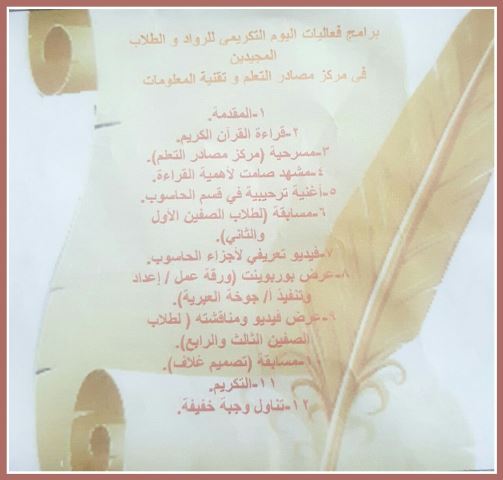 برامج فعاليات اليوم التكريمي للرواد و الطلاب
المجيدين
في مركز مصادر التعلم و تقنية المعلومات
١-المقدمة.
٢-قراءة القرآن الكريم.
٣-مسرحية (مركز مصادر التعلم).
٤-مشهد صامت لأهمية القراءة.
٥-أغنية ترحيبية في قسم الحاسوب.
٦-مسابقة (لطلاب الصفين الأول
والثاني).
٧-فيديو تعريفي لأجزاء الحاسوب.
٨-عرض بوربوينت (ورقة عمل / إعداد
وتنفيذ أ/ جوخة العبرية).
٩-عرض فيديو ومناقشته ( لطلاب
الصفين الثالث والرابع).
١٠-مسابقة (تصميم غلاف).
١١-التكريم.
١٢-تناول وجبة خفيفة.